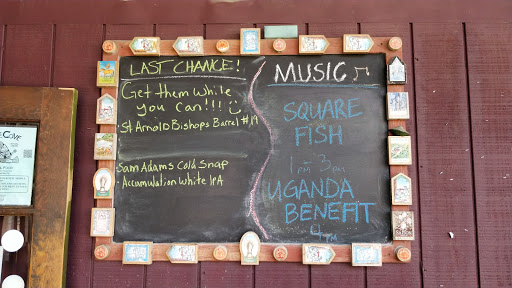 LAST CHANCE!
Get them while
you can!!!
· St Arnold Bishops Barrel #19
Sam Adams Cold Snap
· Accumulation White IPA
MUSIC
SQUARE
FISH
1pm 3pm
UGANDA
BENEFIT
4pm